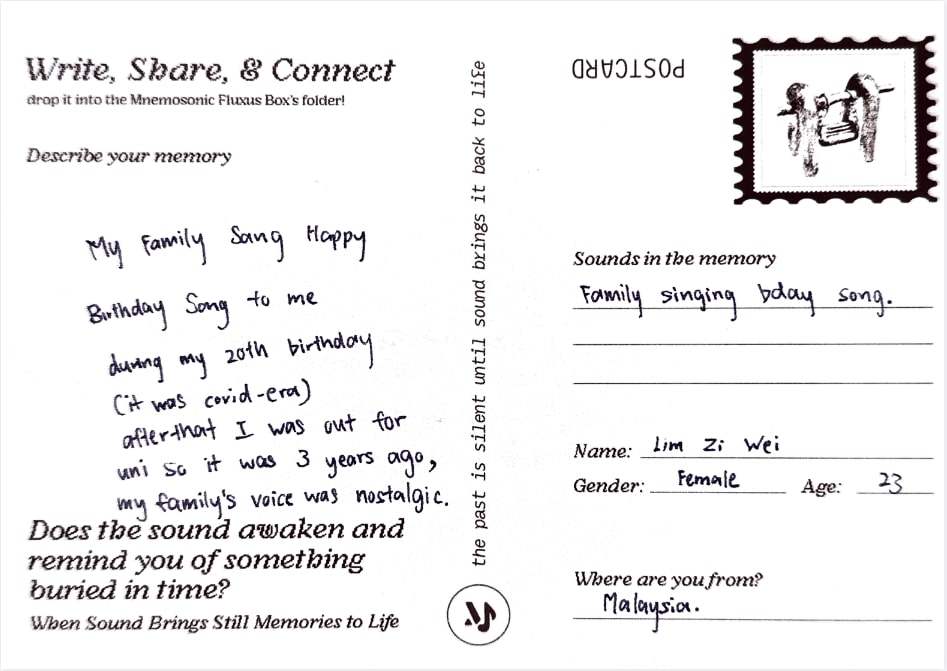 Write, Share, & Connect
drop it into the Mnemosonic Fluxus Box's folder!
Describe your memory
My Family Sang Happy
Birthday Song to me
during my 20th birthday
(it was covid-era)
after that I was out for
uni so it was 3 years ago,
my family's voice was nostalgic.
Does the sound awaken and
remind you of something
buried in time?
When Sound Brings Still Memories to Life
the past is silent until sound brings it back to life
POSTCARD
Sounds in the memory
Family singing bday song.
Name: Lim Zi Wei
Gender: Female Age: 23
Where are you from?
Malaysia.